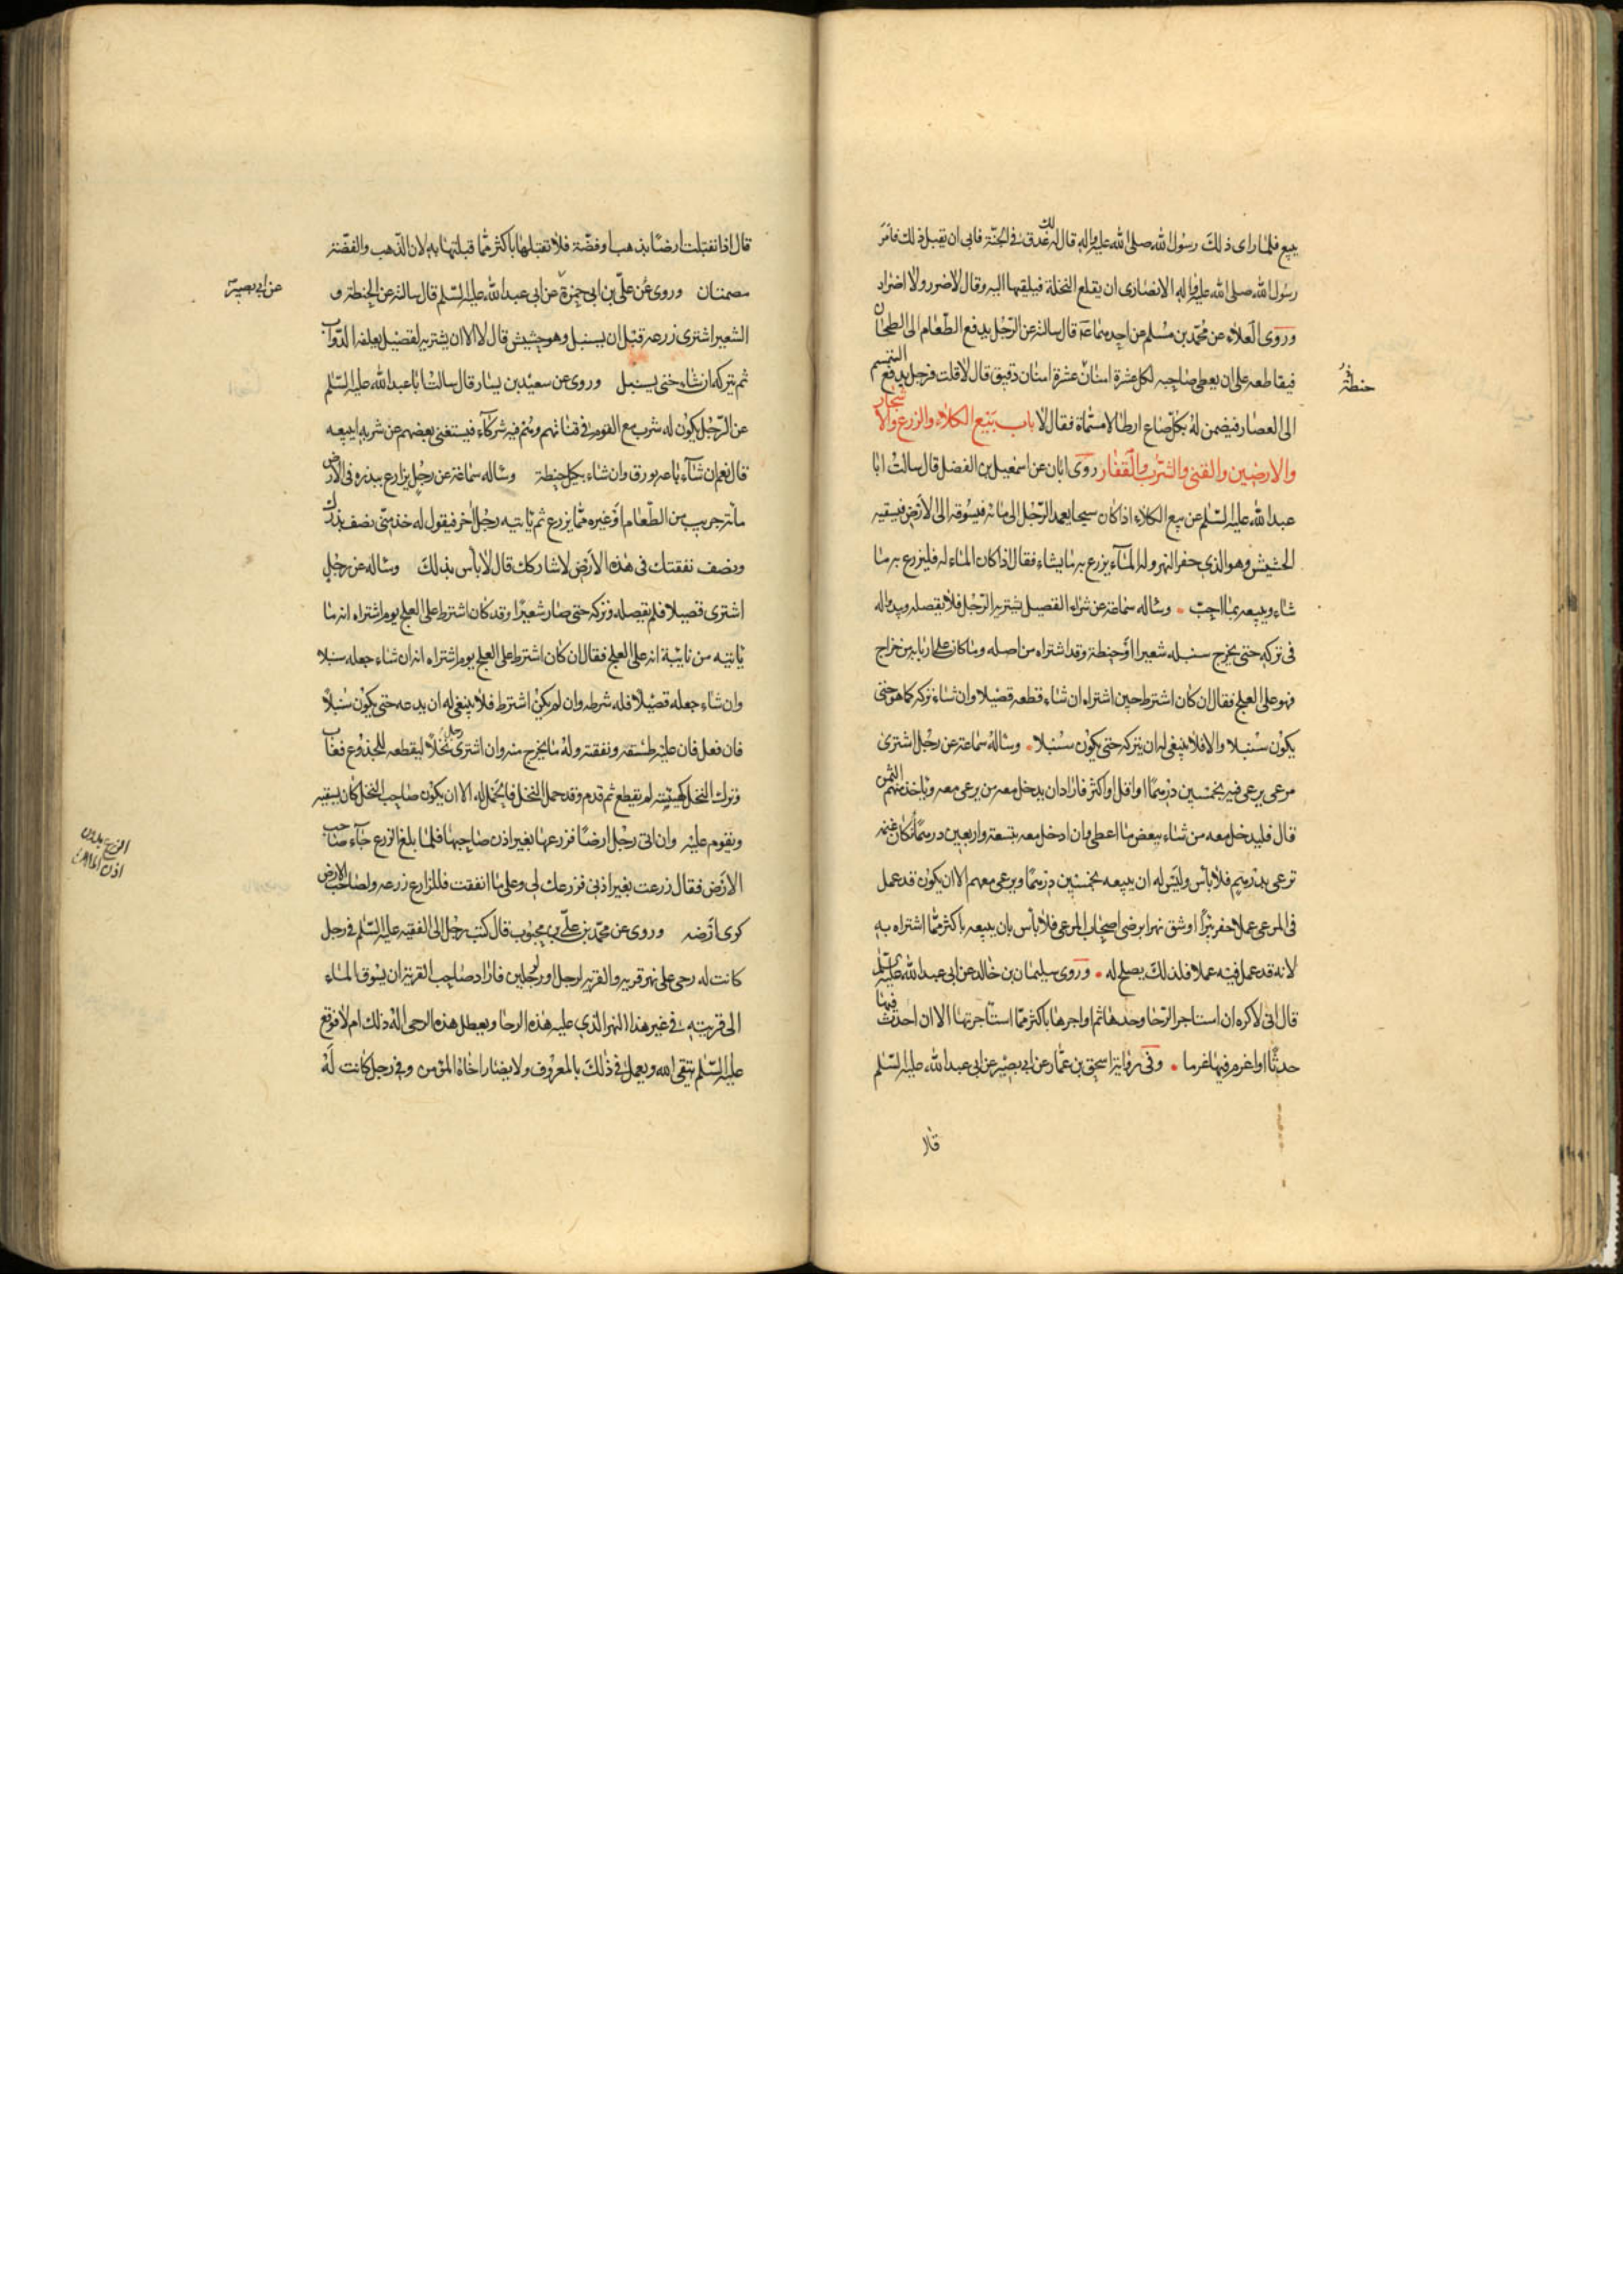 يبيع فلما راى ذلك رسول الله صلى الله عليه واله قال له لك عذق في الجنة فابى ان يقبل ذلك فامر
رسول الله صلى الله عليه واله الانصارى ان يقلع النخلة فيلقيها اليه وقال لا ضرر ولا اضرار
وروى العلاء عن محمد بن مسلم عن احدهما ع قال سالته عن الرجل يدفع الطعام الى الطحان
فيقاطعه على ان يعطى صاحبه لكل عشرة امنان عشرة امنان دقيق قال لا قلت فرجل يدفع السمسم
حنطة
الى العصار فيضمن له بكل صاع ارطالا مسماة فقال لا باب بيع الكلاء والزرع والاشجار
والارضين والقنى والشرب والقفار روى ابان عن اسمعيل بن الفضل قال سالت ابا
عبد الله عليه السلم عن بيع الكلاء اذا كان سيحا يعمد الرجل الى مائه فيسوقه الى الارض فيسقيه
الحشيش وهو الذي حفر النهر وله الماء يزرع به ما يشاء فقال اذا كان الماء له فليزرع به ما
شاء ويبيعه بما احب وساله سماعة عن شراء القصيل يشتريه الرجل فلا يقصله ويبدو له
فى تركه حتى يخرج سنبله شعيرا او حنطة وقد اشتراه من اصله وما كان على اربابه من خراج
فهو على العلج فقال ان كان اشترط حين اشتراه ان شاء قطعه قصيلا وان شاء تركه كما هو حتى
يكون سنبلا والا فلا ينبغى له ان يتركه حتى يكون سنبلا وساله سماعة عن رجل اشترى
مرعى يرعى فيه بخمسين درهما او اقل او اكثر فاراد ان يدخل معه من يرعى معه وياخذ منهم الثمن
قال فليدخل معه من شاء ببعض ما اعطى وان ادخل معه بتسعة واربعين درهما وكان غنمه
ترعى بدرهم فلا باس وليس له ان يبيعه بخمسين درهما ويرعى معهم الا ان يكون قد عمل
فى المرعى عملا حفر بئرا او شق نهرا برضى اصحاب المرعى فلا باس بان يبيعه باكثر مما اشتراه به
لانه قد عمل فيه عملا فلذلك يصلح له وروى سليمان بن خالد عن ابى عبد الله عليه السلم
قال انى لاكره ان استاجر الرحا وحدها ثم اواجرها باكثر مما استاجرتها الا ان احدث فيها
حدثا او اغرم فيها غرما وفى رواية اسحق بن عمار عن ابى بصير عن ابى عبد الله عليه السلم
قال
قال اذا تقبلت ارضا بذهب او فضة فلا تقبلها باكثر مما قبلتها به لان الذهب والفضة
مصمتان وروى عن على بن ابى حمزة عن ابى عبد الله عليه السلم قال سالته عن الحنطة و
عن ابى بصير
الشعير اشترى زرعه قبل ان يسنبل وهو حشيش قال لا الا ان يشتريه لقصيل يعلفه الدواب
ثم يتركه ان شاء حتى يسنبل وروى عن سعيد بن يسار قال سالت ابا عبد الله عليه السلم
عن الرجل يكون له شرب مع القوم فى قناتهم وهم فيه شركاء فيستغنى بعضهم عن شربه ايبيعه
قال نعم ان شاء باعه بورق وان شاء بكيل حنطة وساله سماعة عن رجل يزارع ببذره فى الارض
مائة جريب من الطعام او غيره مما يزرع ثم ياتيه رجل اخر فيقول له خذ منى نصف بذرك
ونصف نفقتك فى هذه الارض لاشاركك قال لا باس بذلك وساله عن رجل
اشترى قصيلا فلم يقصله وتركه حتى صار شعيرا وقد كان اشترط على العلج يوم اشتراه انه ما
ياتيه من نايبة انه على العلج فقال ان كان اشترط على العلج يوم اشتراه انه ان شاء جعله سنبلا
وان شاء جعله قصيلا فله شرطه وان لم يكن اشترط فلا ينبغى له ان يدعه حتى يكون سنبلا
فان فعل فان عليه طسقه ونفقته وله ما يخرج منه وان اشترى رجل نخلا ليقطعه للجذوع فغاب
وترك النخل كهيئته لم يقطع ثم قدم وقد حمل النخل فالحمل له الا ان يكون صاحب النخل كان يسقيه
ويقوم عليه وان اتى رجل ارضا فزرعها بغير اذن صاحبها فلما بلغ الزرع جاء صاحب
الزرع بدون
اذن المالك
الارض فقال زرعت بغير اذنى فزرعك لى وعلى ما انفقت فللزارع زرعه ولصاحب الارض
كرى ارضه وروى عن محمد بن على بن محبوب قال كتب رجل الى الفقيه عليه السلم فى رجل
كانت له رحى على نهر قرية والقرية لرجل او رجلين فاراد صاحب القرية ان يسوق الماء
الى قريته فى غير هذا النهر الذي عليه هذه الرحا ويعطل هذه الرحى اله ذلك ام لا فوقع
عليه السلم يتقى الله ويعمل فى ذلك بالمعروف ولا يضار اخاه المؤمن وفى رجل كانت له